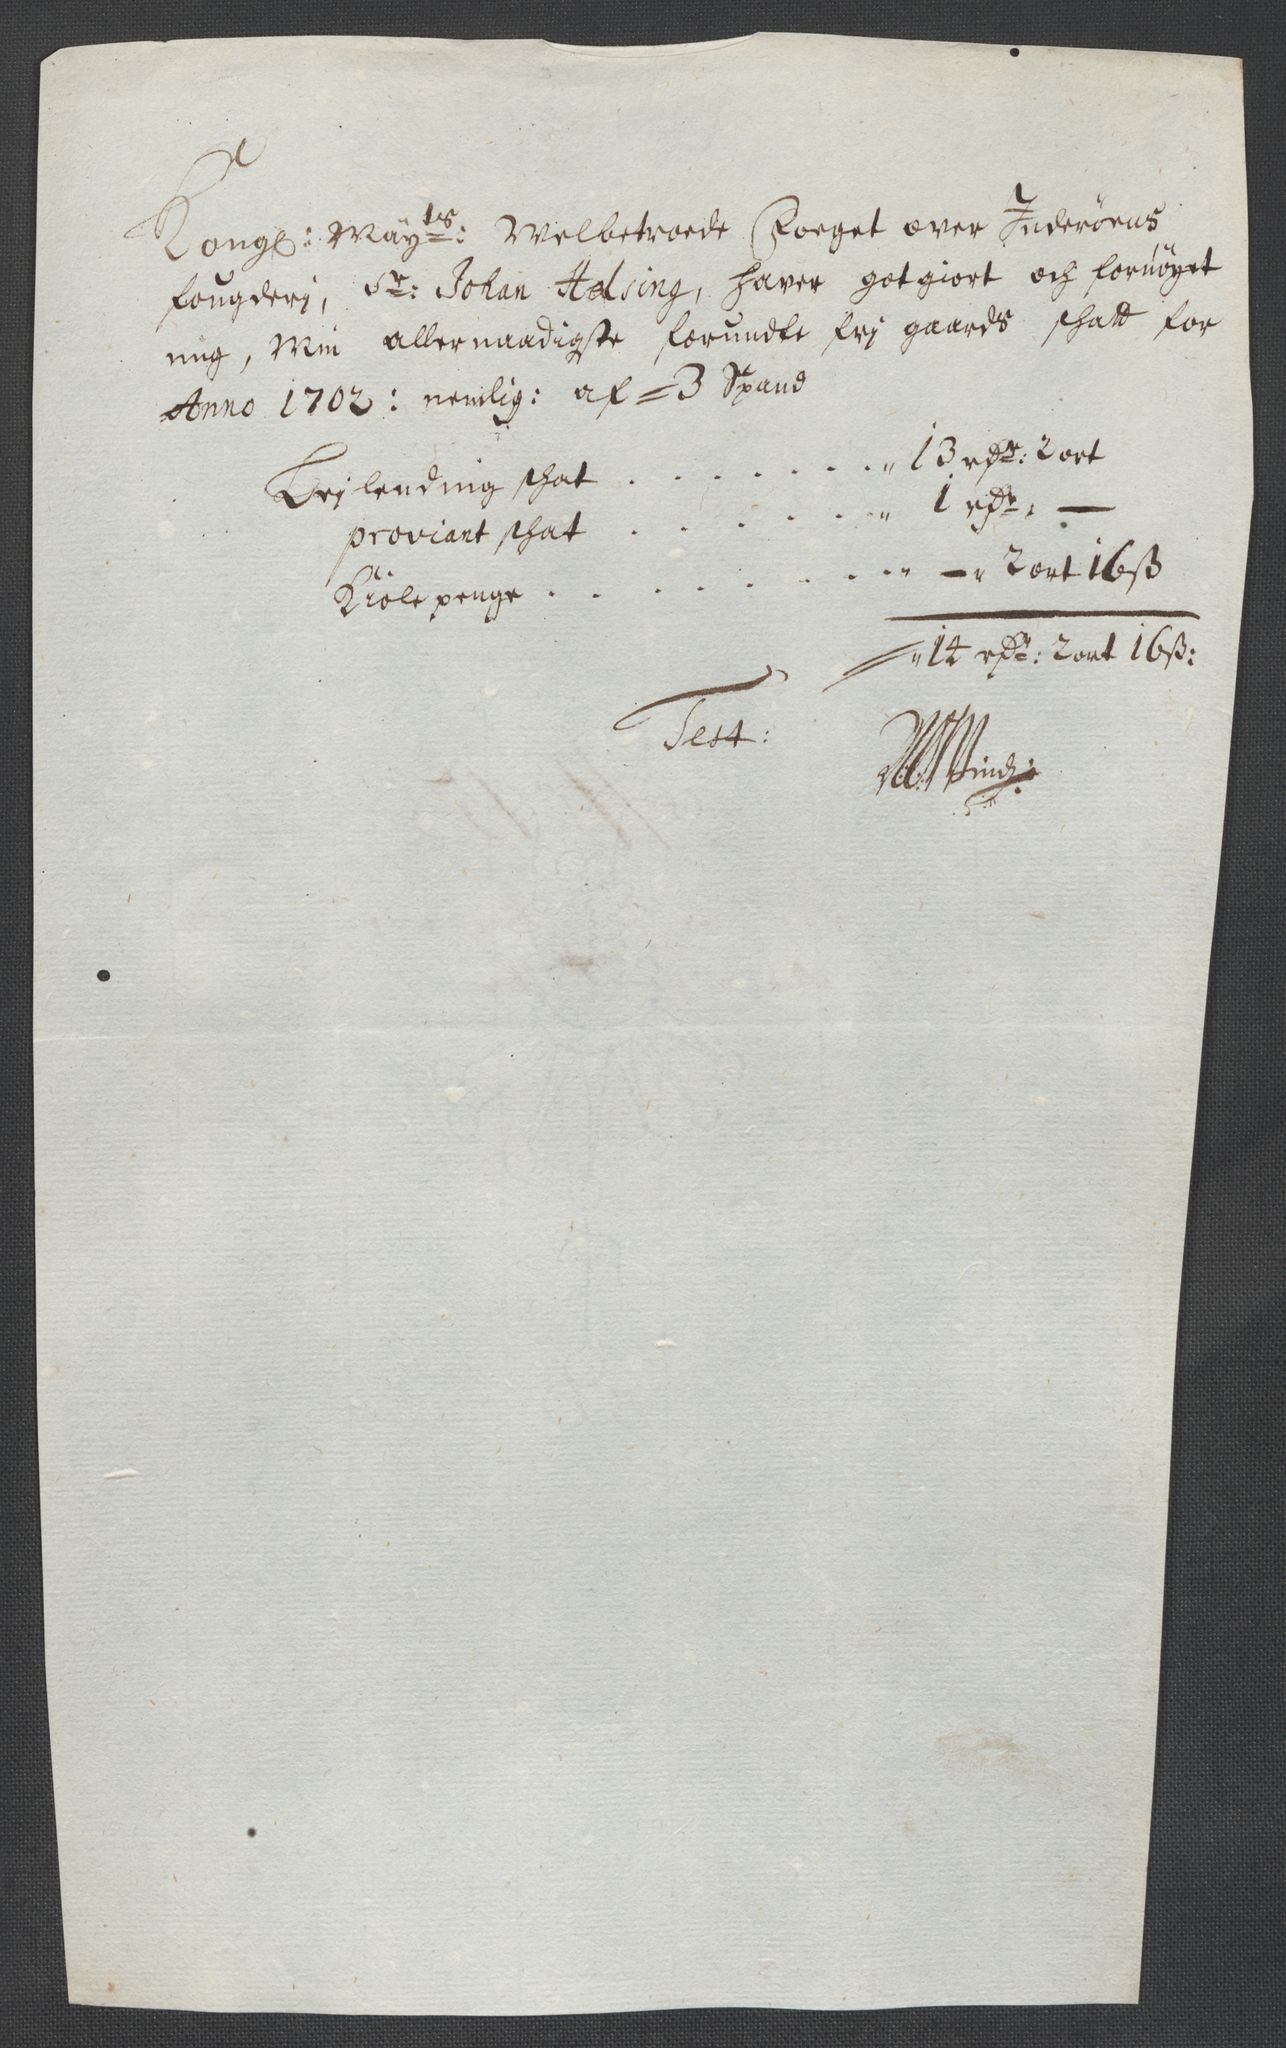 Kongl: Maÿ:ts: Welbetroede Foeget over Inderöens
fougderj, Sr: Johan Helsing, haver gotgiort och fornöyet
mig, Min allernaadigste forundte frj gaards schatt for
Anno 1702: nemlig: af = 3 Spand
Leylending schat . . . . . . . " 13 rdr: 2 ort
proviant schat . . . . . . " 1 rdr: —
Kiöle penge . . . . . . . . . " — " 2 ort 16 ß
" 14 rdr: 2 ort 16 ß:
Test: